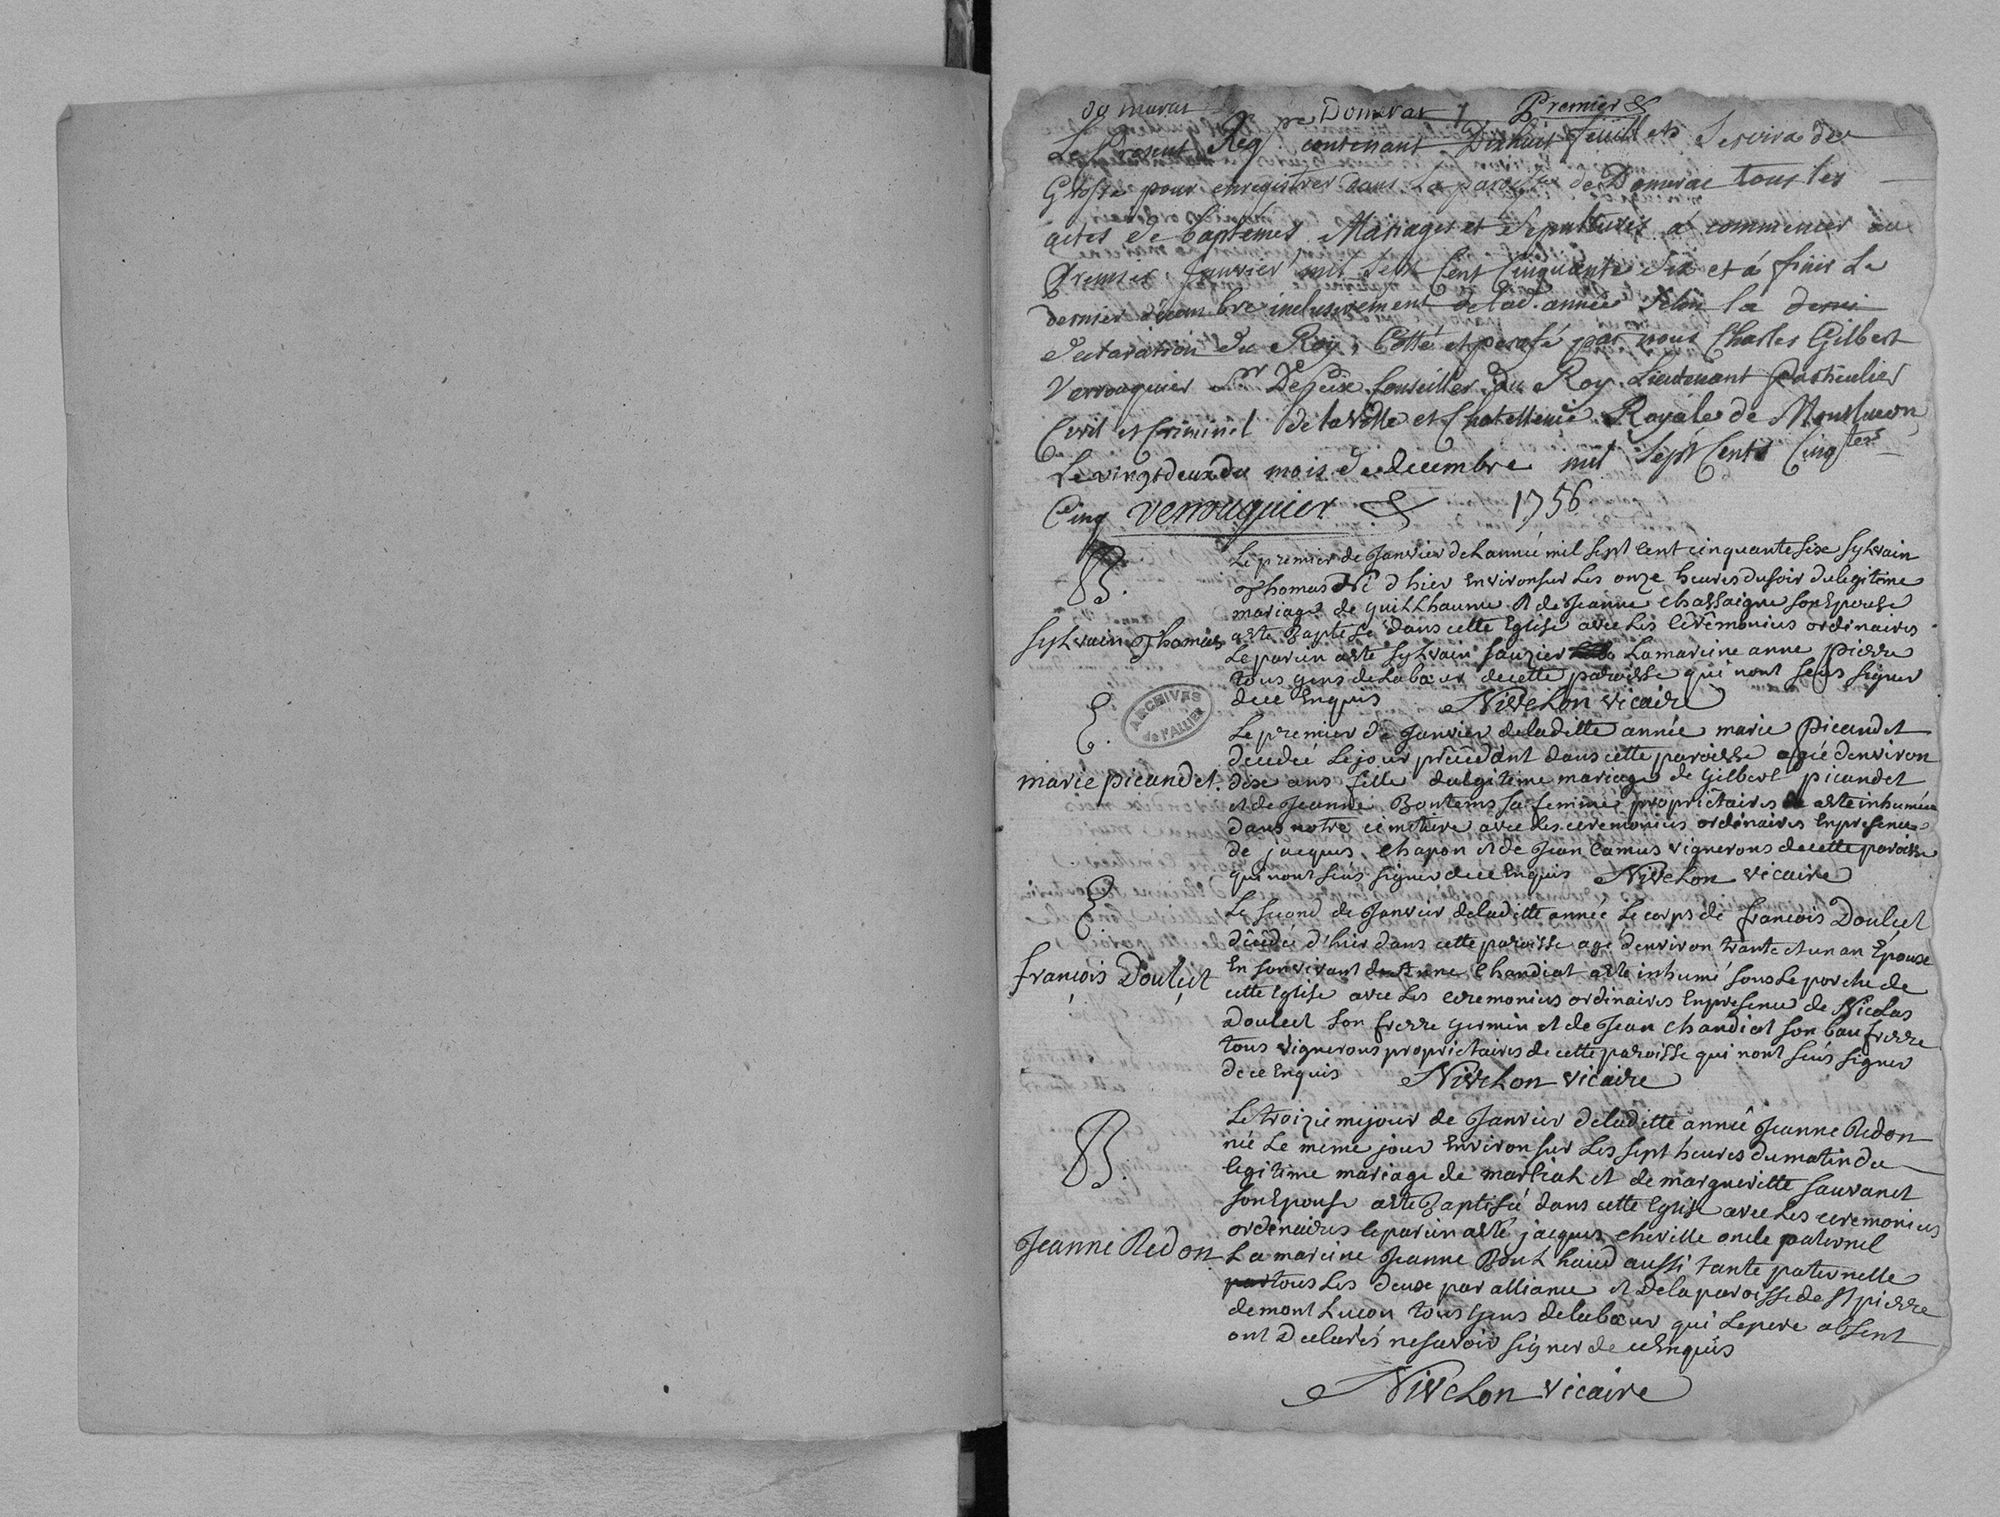 Domerat Premier &
Le present Reg. contenant Dixhuit feuillets Servira de
Grosse pour enregistrer dans La paroisse de Domerac tous les
actes de baptêmes Mariages et Sepultures a commencer au
Premier Janvier mil sept Cent Cinquante Six et à finir Le
dernier decembre inclusivement de lad. année Selon la derni
declaration du Roy, Cotté et parafé par nous Charles Gilbert
Verrouquier Conseiller du Roy Lieutenant particulier
Civil et Criminel de la Ville et Chatellenie Royale de Montlucon
Le vingtdeux du mois de decembre mil Sept Cents Cinq
Cinq verrouquier 1756
B.
Sylvain Thomas
Le premier de Janvier de Lanneé mil sept Cent cinquante sixe Sylvain
Thomas Né d'hier Environ sur Les onze heures du soir du legitime
mariage de guillhaume & de Jeanne Chassaigne son Epouse
aeté Baptisé dans cette Eglise avec Les Cérémonies ordinaires
Le parin aeté Sylvain Sauzier La marine anne pierre
tous gens de Labœur decette paroisse qui nont seus signer
dece Enquis Nivelon vicaire
ARCHIVES de l'ALLIER
E.
marie picandet.
Le premier de Janvier deladitte année marie Picandet
décedée Le jour précédant dans cette paroisse ageé denviron
dixe ans fille dulgitime mariage de Gilbert picandet
et de Jeanne Boutems sa femme propriétaires aeté inhumée
dans notre cimetiere avec Les ceremonies ordinaires En presence
de jacques Chapon et de Jean Camus vignerons decette paroisse
qui nont seus signer dece Enquis Nivelon vicaire
E.
françois Douleet
Le second de Janvier deladitte année Le corps de françois Douleet
décédé d'hier dans cette paroisse agé denviron trante et un an Epouse
En son vivant Chandiat aeté inhumé sous Le porche de
cette Eglise avec Les ceremonies ordinaires En presence de Nicolas
Douleet son frerre germin et de Jean Chandiat son bau frerre
tous vignerons proprietaires de cette paroisse qui nont seus signer
dece Enquis Nivelon vicaire
B.
Jeanne Redon
Le troizieme jour de Janvier deladitte année Jeanne Redon
née Le meme jour Environ sur Les sept heures du matin du
legitime mariage de martial et de margueritte sauvanet
son Epouse aeté Baptiseé dans cette Eglise avec Les ceremonies
ordinaires le parin aeté jacques cheville oncle paternel
La marine Jeanne Bouthaud aussi tante paternelle
tous Les deuxe par alliance et De la paroisse de st pierre
de mont Lucon tous gens de labœur qui Le pere absent
ont declarés ne savoir signer de ce Enquis
Nivelon vicaire